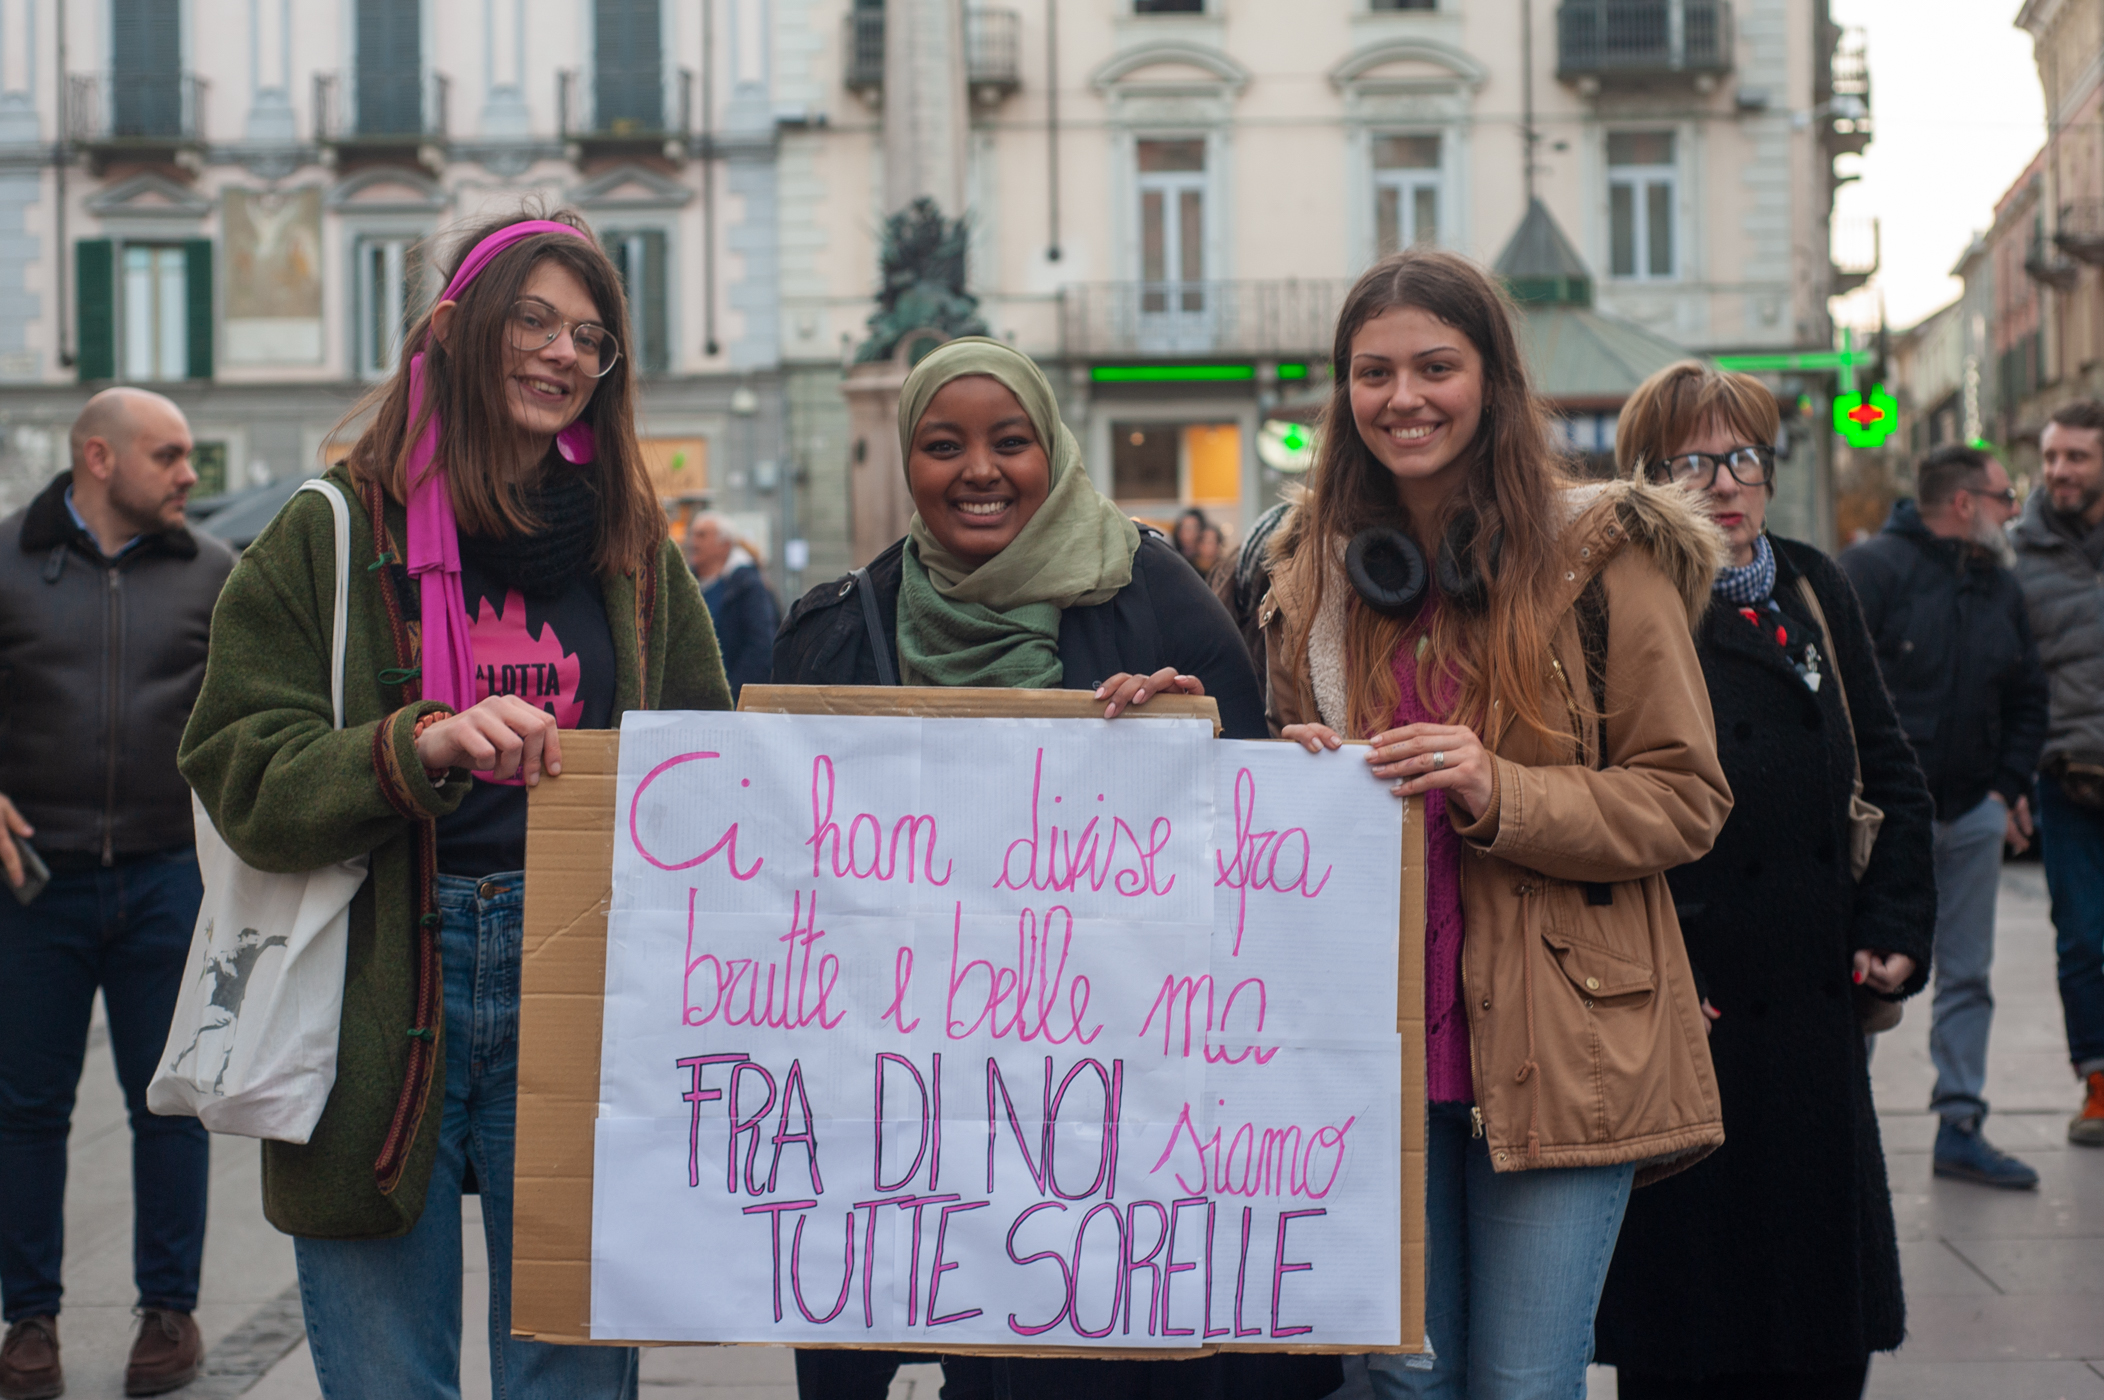 LOTTA
Ci han divise fra
brutte e belle ma
FRA DI NOI siamo
TUTTE SORELLE